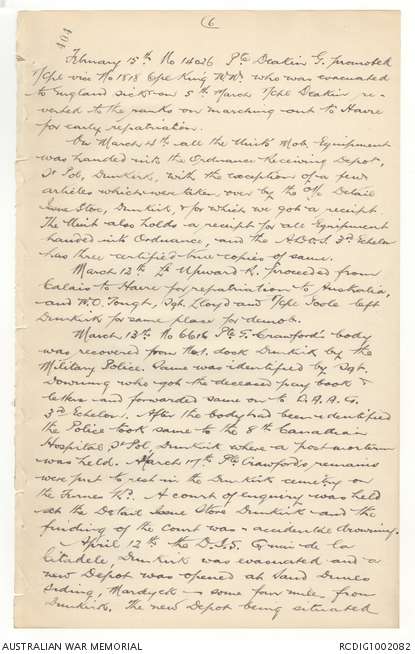 (6
404
February 15th No 14026 Pte Deakin G. promoted
T/Cpl vice No 1818 Cpl King W.N. who was evacuated
to England sick on 5th March T/Cpl Deakin re-
verted to the ranks on marching out to Havre
for early repatriation.
On March 4th all the Unit's Mob Equipment
was handed into the Ordnance Receiving Depot,
St Pol, Dunkirk, with the exception of a few
articles which were taken over by the o/c Detail
Issue Store, Dunkirk, & for which we got a receipt.
The Unit also holds a receipt for all Equipment
handed into Ordnance, and the 3rd Echelon
has three certified true copies of same.
March 12th Lt Upward K. proceeded from
Calais to Havre for repatriation to Australia,
and W.O. Tongt, Sgt. Lloyd and T/Cpl Toole left
Dunkirk for same place for demob.
March 13th No 6616 Pte G. Crawford's body
was recovered from No 1. dock Dunkirk by the
Military Police. Same was identified by Sgt.
Downing who got the deceased pay book &
letters and forwarded same on to D.A.A.G.
3rd Echelon. After the body had been identified
the Police took same to the 8th Canadian
Hospital, St Pol, Dunkirk where a post mortem
was held. March 17th Pte Crawford's remains
were put to rest in the Dunkirk cemetry on
the Furnes Rd. A court of enquiry was held
at the Detail Issue Store Dunkirk and the
finding of the Court was - accidental drowning.
April 12th the D.I.S. Quai de la
Citadele, Dunkirk was evacuated and a
new Depot was opened at Sand Dunes
Siding, Mardyck - some four mile from
Dunkirk. The new Depot being situated
AUSTRALIAN WAR MEMORIAL
RCDIG1002082